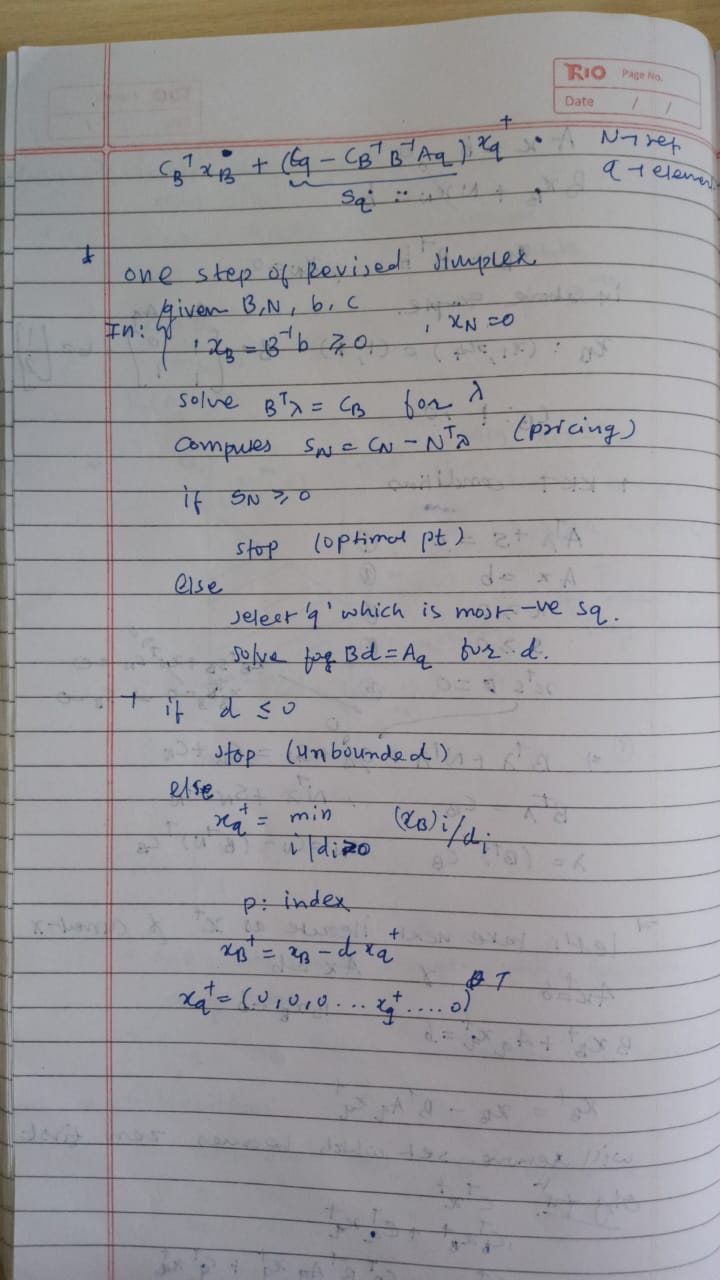 TRIO Page No.
Date / /
C_B^T x_B + (C_q - C_B^T B^-1 A_q) x_q^+ N → set
s_q q → element
* one step of Revised simplex
given B, N, b, c
In: x_B = B^-1 b ≥ 0, x_N = 0
solve B^T λ = C_B for λ
computes s_N = C_N - N^T λ (pricing)
if s_N ≥ 0
stop (optimal pt)
else
select 'q' which is most -ve s_q.
solve Bd = A_q for d.
if d ≤ 0
stop (unbounded)
else
x_q^+ = min (x_B)i/d_i
i/d_i>0
p: index
x_B^+ = x_B - d x_q^+
x_q^+ = (0,0,0 ... x_q^+ .... 0)^T